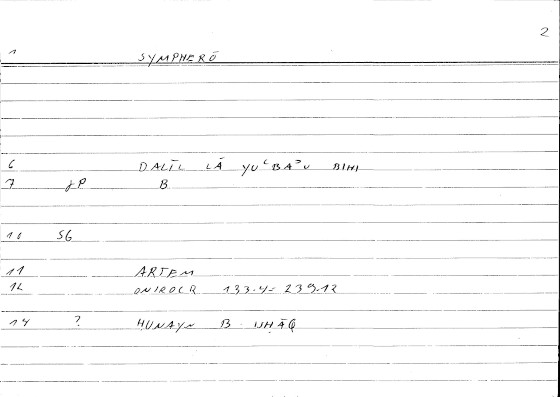 2
1 SYMPHERŌ
6 DALĪL LĀ YUʿBAʾU BIHI
7 gP B
10 SG
11 ARTEM
12 ONIROCR 133.4 = 239.12
14 ? ḤUNAYN B ISḤĀQ